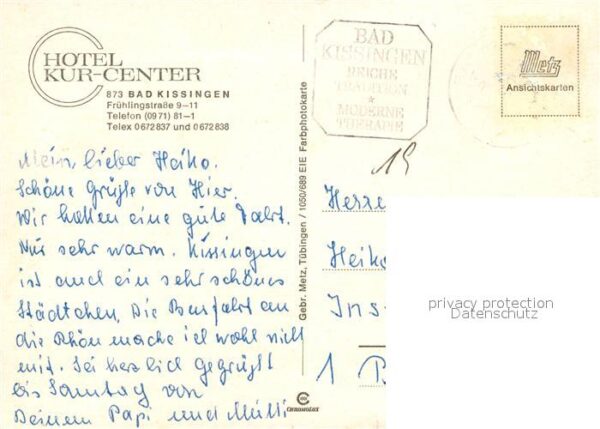 HOTEL
KUR-CENTER
873 BAD KISSINGEN
Frühlingstraße 9–11
Telefon (0971) 81–1
Telex 0672837 und 0672838
Mein lieber Heiko.
Schöne Grüße von Hier.
Wir hatten eine gute Fahrt.
Nur sehr warm. Kissingen
ist auch ein sehr schönes
Städtchen. Die Busfahrt an
die Rhön mache ich wohl nicht
mit. Sei herzlich gegrüßt
bis Samstag von
Deinem Papi und Mutti
Gebr. Metz, Tübingen / 1050/689 EIE Farbphotokarte
CHROMOLUX
BAD
KISSINGEN
REICHE
TRADITION
*
MODERNE
THERAPIE
Metz
Ansichtskarten
19
Herrn
Heiko
Ins
1 B
privacy protection
Datenschutz